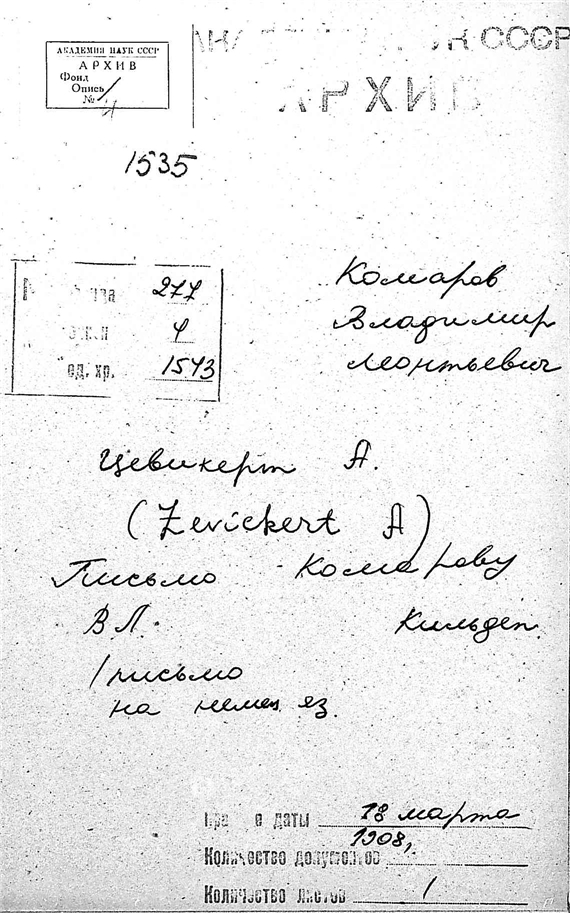 АКАДЕМИЯ НАУК СССР
АРХИВ
Фонд
Опись 1
№ 4
СССР
АРХИВ
1535
277
4
ед. хр. 1543
Комаров
Владимир
Леонтьевич
Цевикерт А.
(Zevickert A)
Письмо Комарову
В Л. Кильден.
1 письмо
на немец яз.
е даты 18 марта
1908,
Количество документов
Количество листов 1